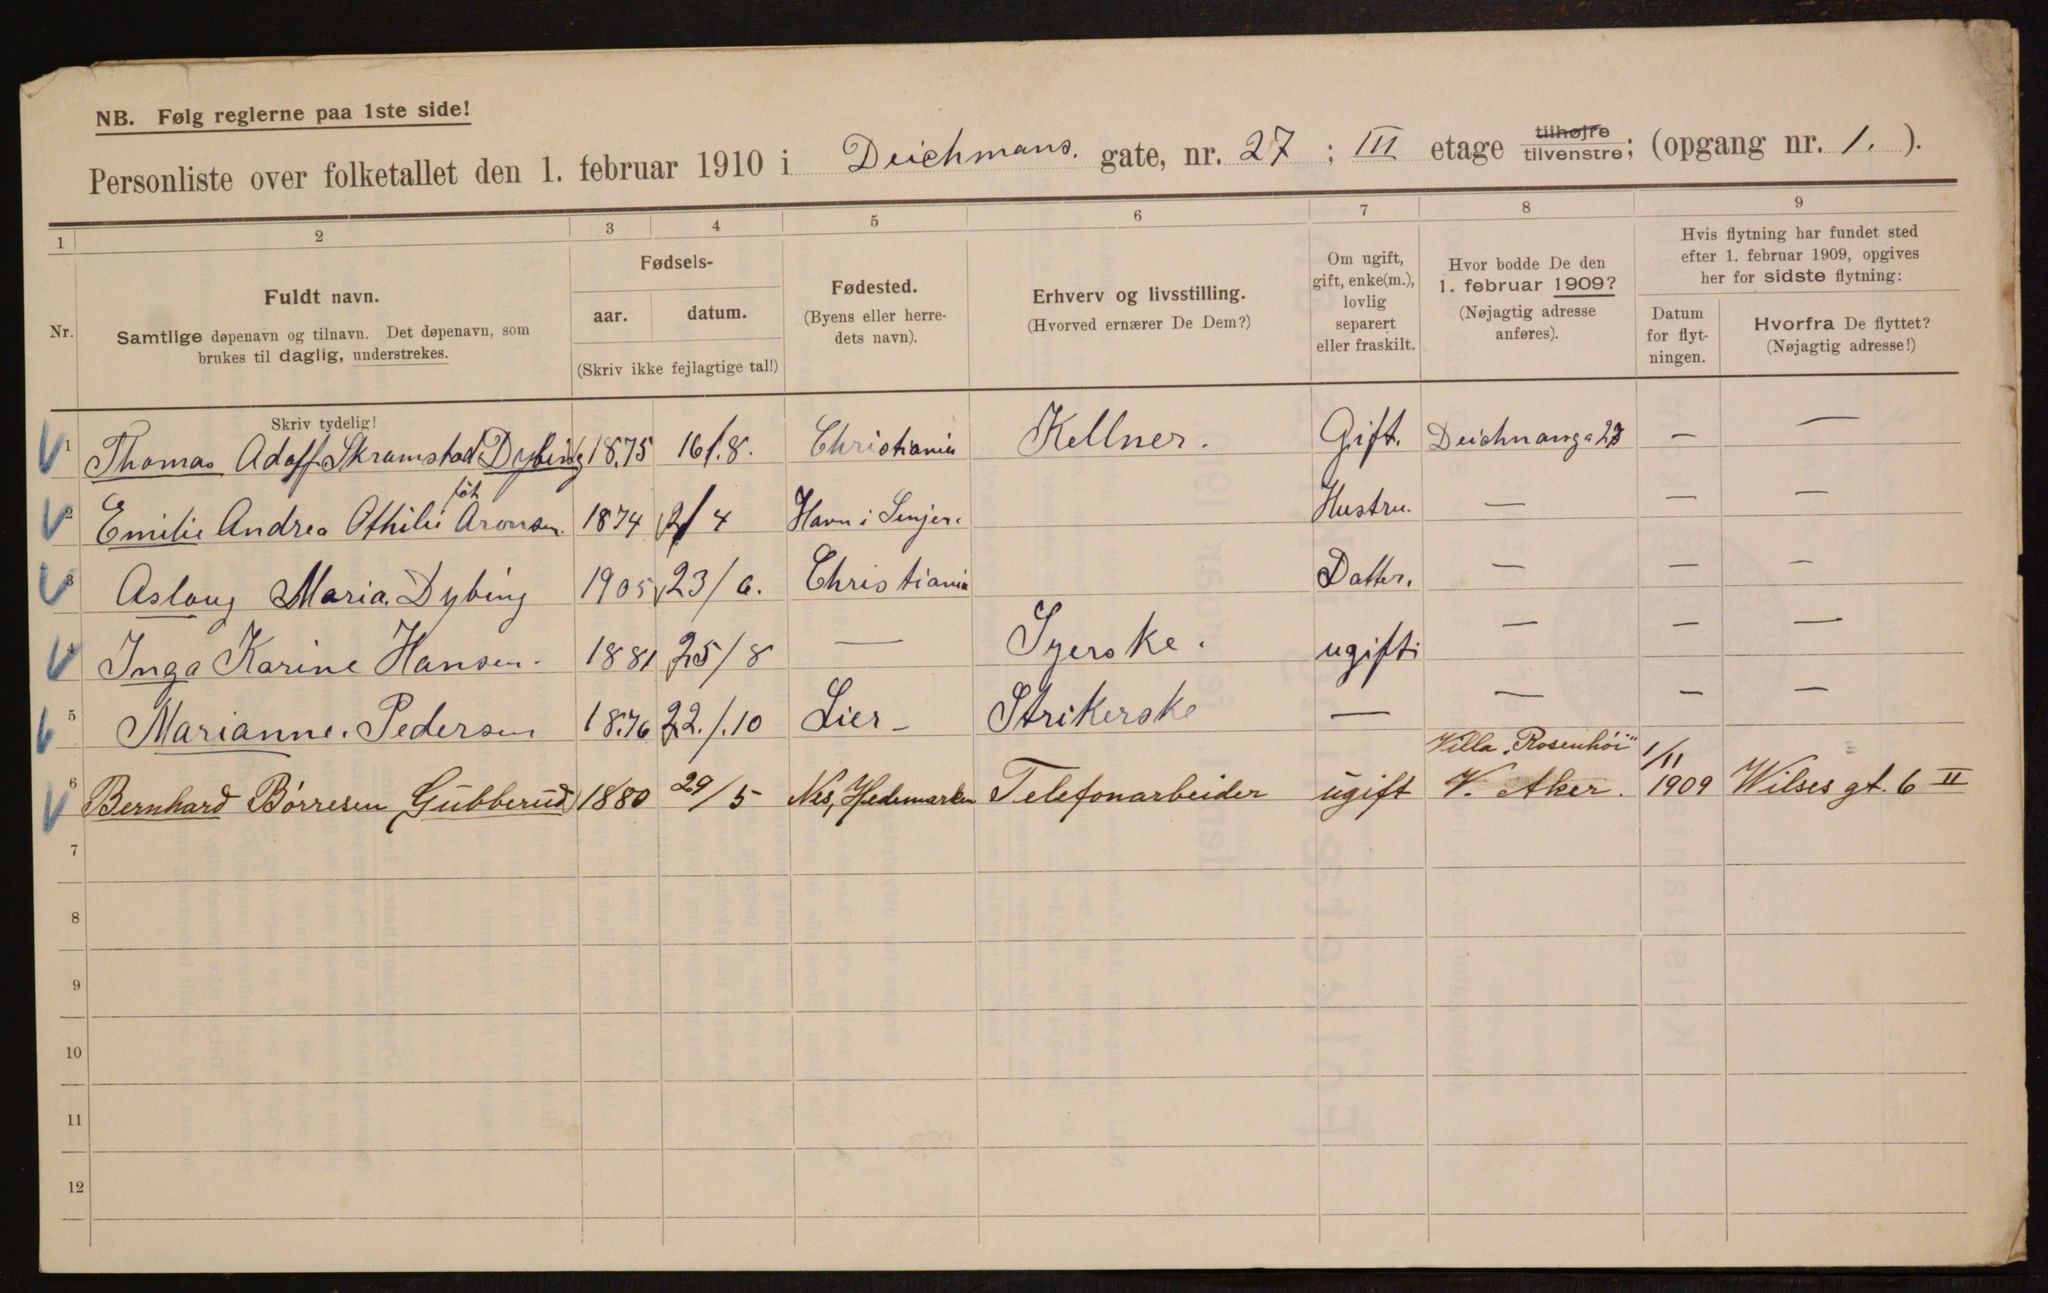 NB. Følg reglerne paa 1ste side!
Personliste over folketallet den 1. februar 1910 i Deichmans. gate, nr. 27 ; III etage tilhøjre tilvenstre; (opgang nr. 1. ).
1 2 3 4 5 6 7 8 9
Nr.
Fuldt navn.
Samtlige døpenavn og tilnavn. Det døpenavn, som
brukes til daglig, understrekes.
Skriv tydelig!
Fødsels-
aar. datum.
(Skriv ikke fejlagtige tal!)
Fødested.
(Byens eller herre-
dets navn).
Erhverv og livsstilling.
(Hvorved ernærer De Dem?)
Om ugift,
gift, enke(m.),
lovlig
separert
eller fraskilt.
Hvor bodde De den
1. februar 1909?
(Nøjagtig adresse
anføres).
Hvis flytning har fundet sted
efter 1. februar 1909, opgives
her for sidste flytning:
Datum
for flyt-
ningen.
Hvorfra De flyttet?
(Nøjagtig adresse!)
1 Thomas Adolf Skramstad Dybing 1875 16/.8. Christiania Kellner. Gift. — —
2 Emilie Andrea Othilie føt Aronsen. 1874 2/4 Havn i Hustru. — — —
3 Aslaug Maria. Dybing 1905 23/6. Christiania Datter. — — —
4 Inga Karine Hansen. 1881 25/8 — Syerske. ugift — — —
5 Marianne. Pedersen 1876 22./.10 Lier — Strikerske — — — —
6 Bernhard Børresen Gubberud 1880 29/5 Nes, Hedemarken Telefonarbeider ugift Villa "Rosenhöi" V. Aker. 1/11 1909 Wilses gt. 6 II
7
8
9
10
11
12